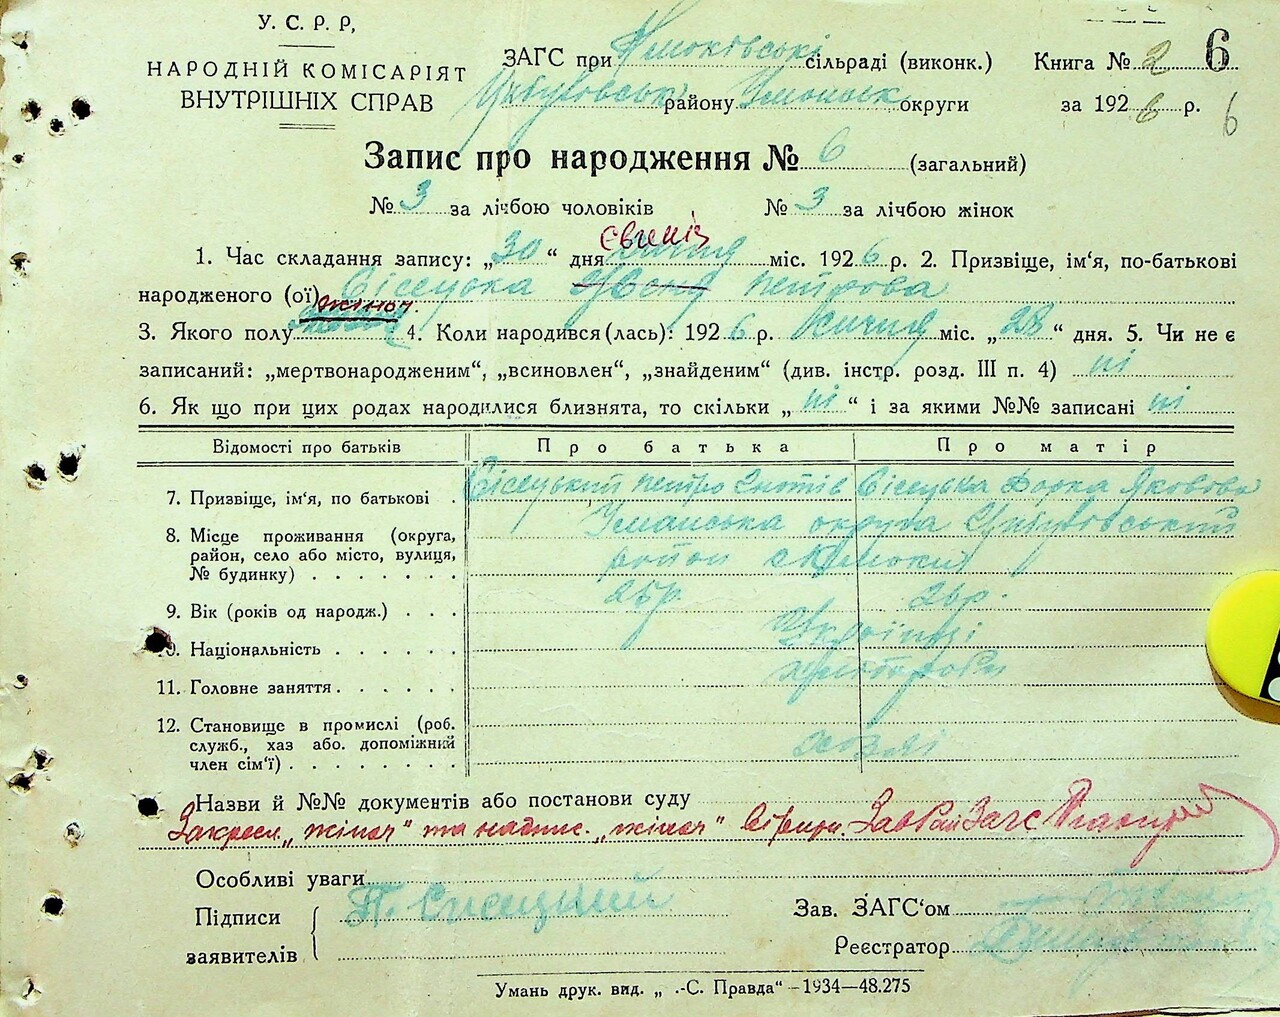 У. С. Р. Р,
НАРОДНІЙ КОМІСАРІЯТ
ВНУТРІШНІХ СПРАВ
ЗАГС при сільраді (виконк.) Книга № 2 6
району округи за 1926 р. 6
Запис про народження № 6 (загальний)
№ 3 за лічбою чоловіків № 3 за лічбою жінок
Євгенія
1. Час складання запису: „30“ дня січня міс. 1926 р. 2. Призвіще, ім‘я, по-батькові
народженого (ої) Сісецька Петрова
жіноч.
3. Якого полу 4. Коли народився(лась): 1926 р. січня міс. „28“ дня. 5. Чи не є
записаний: „мертвонародженим“, „всиновлен“, „знайденим“ (див. інстр. розд. III п. 4) ні
6. Як що при цих родах народилися близнята, то скільки „ні“ і за якими №№ записані ні
Відомості про батьків Про батька Про матір
7. Призвіще, ім‘я, по батькові . Сісецький Петро Сісецька Яковова
8. Місце проживання (округа, район, село або місто, вулиця, № будинку) . . . . . . . Уманська округа
район
9. Вік (років од народж.) . . . 25р 26р.
10. Національність . . . . . . Українці
11. Головне заняття . . . . . . хлібороби
12. Становище в промислі (роб. служб., хаз або. допоміжний член сім‘ї) . . . . . . . . хозяї
Назви й №№ документів або постанови суду
Закресл. „жіноч“ та надпис. „жіноч“ Заврай Загс
Особливі уваги
Підписи П. Сисецкий Зав. ЗАГС‘ом
заявителів Реєстратор
Умань друк. вид. „ .-С. Правда“ –1934—48.275